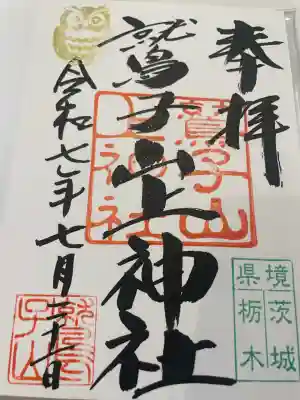 奉拝
鷲子山上神社
鷲子山
上神社
令和七年七月二十日
境茨城
県栃木